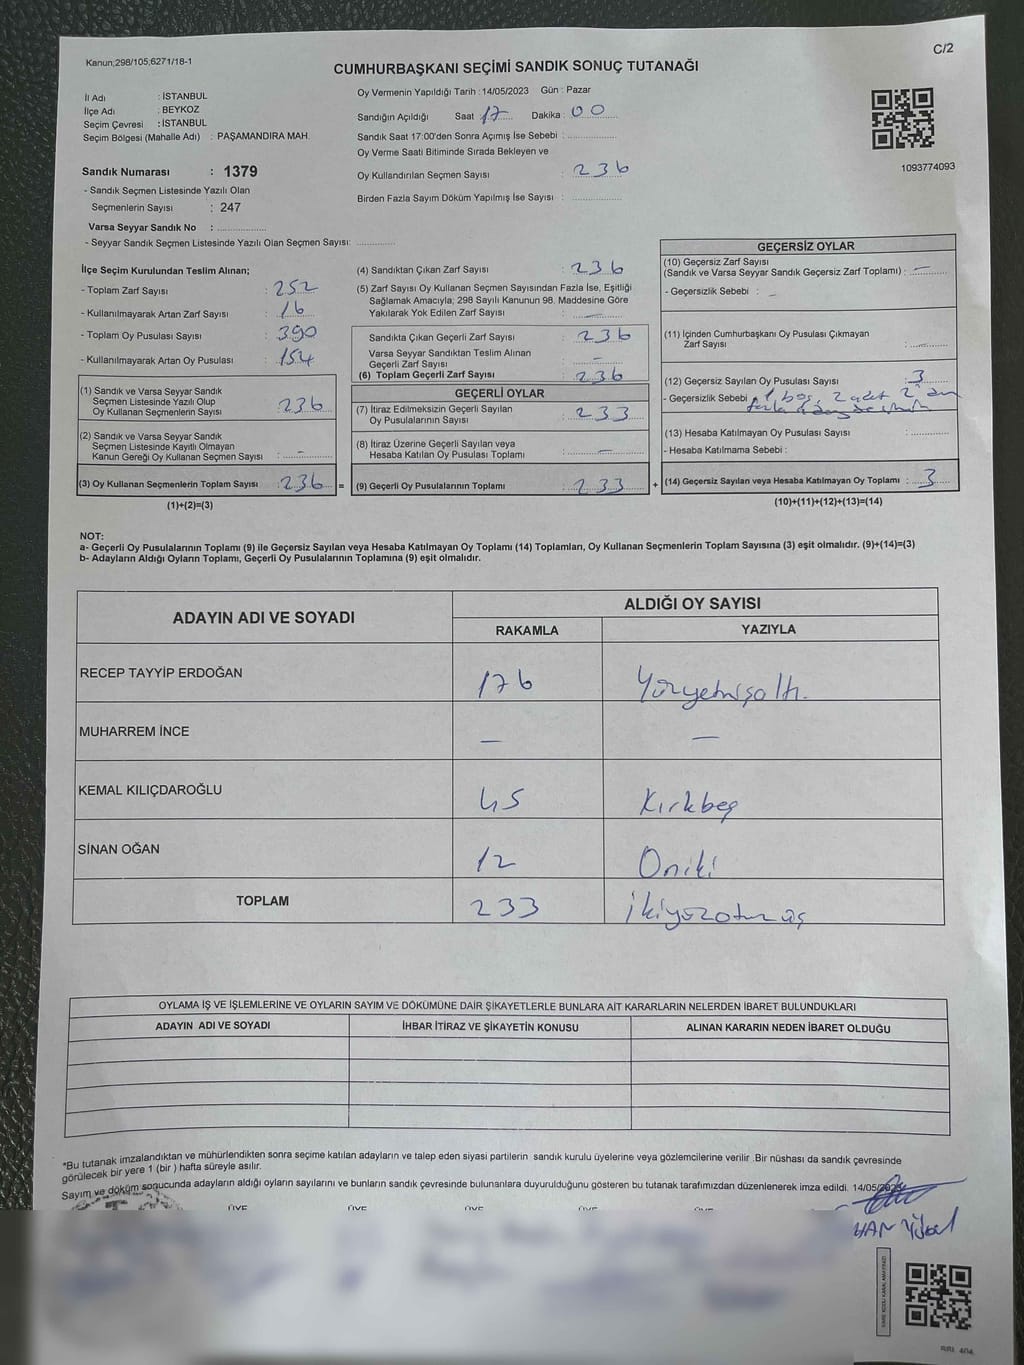 Kanun;298/105;6271/18-1
C/2
CUMHURBAŞKANI SEÇİMİ SANDIK SONUÇ TUTANAĞI
İl Adı : İSTANBUL
İlçe Adı : BEYKOZ
Seçim Çevresi : İSTANBUL
Seçim Bölgesi (Mahalle Adı) : PAŞAMANDIRA MAH.
Sandık Numarası : 1379
- Sandık Seçmen Listesinde Yazılı Olan
Seçmenlerin Sayısı : 247
Varsa Seyyar Sandık No :
- Seyyar Sandık Seçmen Listesinde Yazılı Olan Seçmen Sayısı:
Oy Vermenin Yapıldığı Tarih : 14/05/2023 Gün : Pazar
Sandığın Açıldığı Saat 17 Dakika : 00
Sandık Saat 17:00'den Sonra Açımış İse Sebebi :
Oy Verme Saati Bitiminde Sırada Bekleyen ve
Oy Kullandırılan Seçmen Sayısı : 236
Birden Fazla Sayım Döküm Yapılmış İse Sayısı :
1093774093
İlçe Seçim Kurulundan Teslim Alınan;
- Toplam Zarf Sayısı : 252
- Kullanılmayarak Artan Zarf Sayısı : 16
- Toplam Oy Pusulası Sayısı : 390
- Kullanılmayarak Artan Oy Pusulası : 154
(1) Sandık ve Varsa Seyyar Sandık
Seçmen Listesinde Yazılı Olup
Oy Kullanan Seçmenlerin Sayısı : 236
(2) Sandık ve Varsa Seyyar Sandık
Seçmen Listesinde Kayıtlı Olmayan
Kanun Gereği Oy Kullanan Seçmen Sayısı : -
(3) Oy Kullanan Seçmenlerin Toplam Sayısı : 236 =
(1)+(2)=(3)
(4) Sandıktan Çıkan Zarf Sayısı : 236
(5) Zarf Sayısı Oy Kullanan Seçmen Sayısından Fazla İse, Eşitliği
Sağlamak Amacıyla; 298 Sayılı Kanunun 98. Maddesine Göre
Yakılarak Yok Edilen Zarf Sayısı : -
Sandıkta Çıkan Geçerli Zarf Sayısı : 236
Varsa Seyyar Sandıktan Teslim Alınan
Geçerli Zarf Sayısı : -
(6) Toplam Geçerli Zarf Sayısı : 236
GEÇERLİ OYLAR
(7) İtiraz Edilmeksizin Geçerli Sayılan
Oy Pusulalarının Sayısı : 233
(8) İtiraz Üzerine Geçerli Sayılan veya
Hesaba Katılan Oy Pusulası Toplamı : -
(9) Geçerli Oy Pusulalarının Toplamı : 233 +
GEÇERSİZ OYLAR
(10) Geçersiz Zarf Sayısı
(Sandık ve Varsa Seyyar Sandık Geçersiz Zarf Toplamı) : -
- Geçersizlik Sebebi : -
(11) İçinden Cumhurbaşkanı Oy Pusulası Çıkmayan
Zarf Sayısı :
(12) Geçersiz Sayılan Oy Pusulası Sayısı : 3
- Geçersizlik Sebebi : 1 boş, 2 adet 2 den
fazla
(13) Hesaba Katılmayan Oy Pusulası Sayısı :
- Hesaba Katılmama Sebebi :
(14) Geçersiz Sayılan veya Hesaba Katılmayan Oy Toplamı : 3
(10)+(11)+(12)+(13)=(14)
NOT:
a- Geçerli Oy Pusulalarının Toplamı (9) ile Geçersiz Sayılan veya Hesaba Katılmayan Oy Toplamı (14) Toplamları, Oy Kullanan Seçmenlerin Toplam Sayısına (3) eşit olmalıdır. (9)+(14)=(3)
b- Adayların Aldığı Oyların Toplamı, Geçerli Oy Pusulalarının Toplamına (9) eşit olmalıdır.
ADAYIN ADI VE SOYADI
ALDIĞI OY SAYISI
RAKAMLA YAZIYLA
RECEP TAYYİP ERDOĞAN 176 Yüzyetmişaltı.
MUHARREM İNCE - -
KEMAL KILIÇDAROĞLU 45 Kırkbeş
SİNAN OĞAN 12 Oniki
TOPLAM 233 ikiyüzotuzüç
OYLAMA İŞ VE İŞLEMLERİNE VE OYLARIN SAYIM VE DÖKÜMÜNE DAİR ŞİKAYETLERLE BUNLARA AİT KARARLARIN NELERDEN İBARET BULUNDUKLARI
ADAYIN ADI VE SOYADI İHBAR İTİRAZ VE ŞİKAYETİN KONUSU ALINAN KARARIN NEDEN İBARET OLDUĞU
*Bu tutanak imzalandıktan ve mühürlendikten sonra seçime katılan adayların ve talep eden siyasi partilerin sandık kurulu üyelerine veya gözlemcilerine verilir .Bir nüshası da sandık çevresinde
görülecek bir yere 1 (bir ) hafta süreyle asılır.
Sayım ve döküm sonucunda adayların aldığı oyların sayılarını ve bunların sandık çevresinde bulunanlara duyurulduğunu gösteren bu tutanak tarafımızdan düzenlenerek imza edildi. 14/05/2023
ÜYE ÜYE ÜYE ÜYE